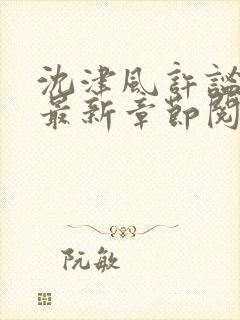 沈津风許謐
最新章節閱
阮敏